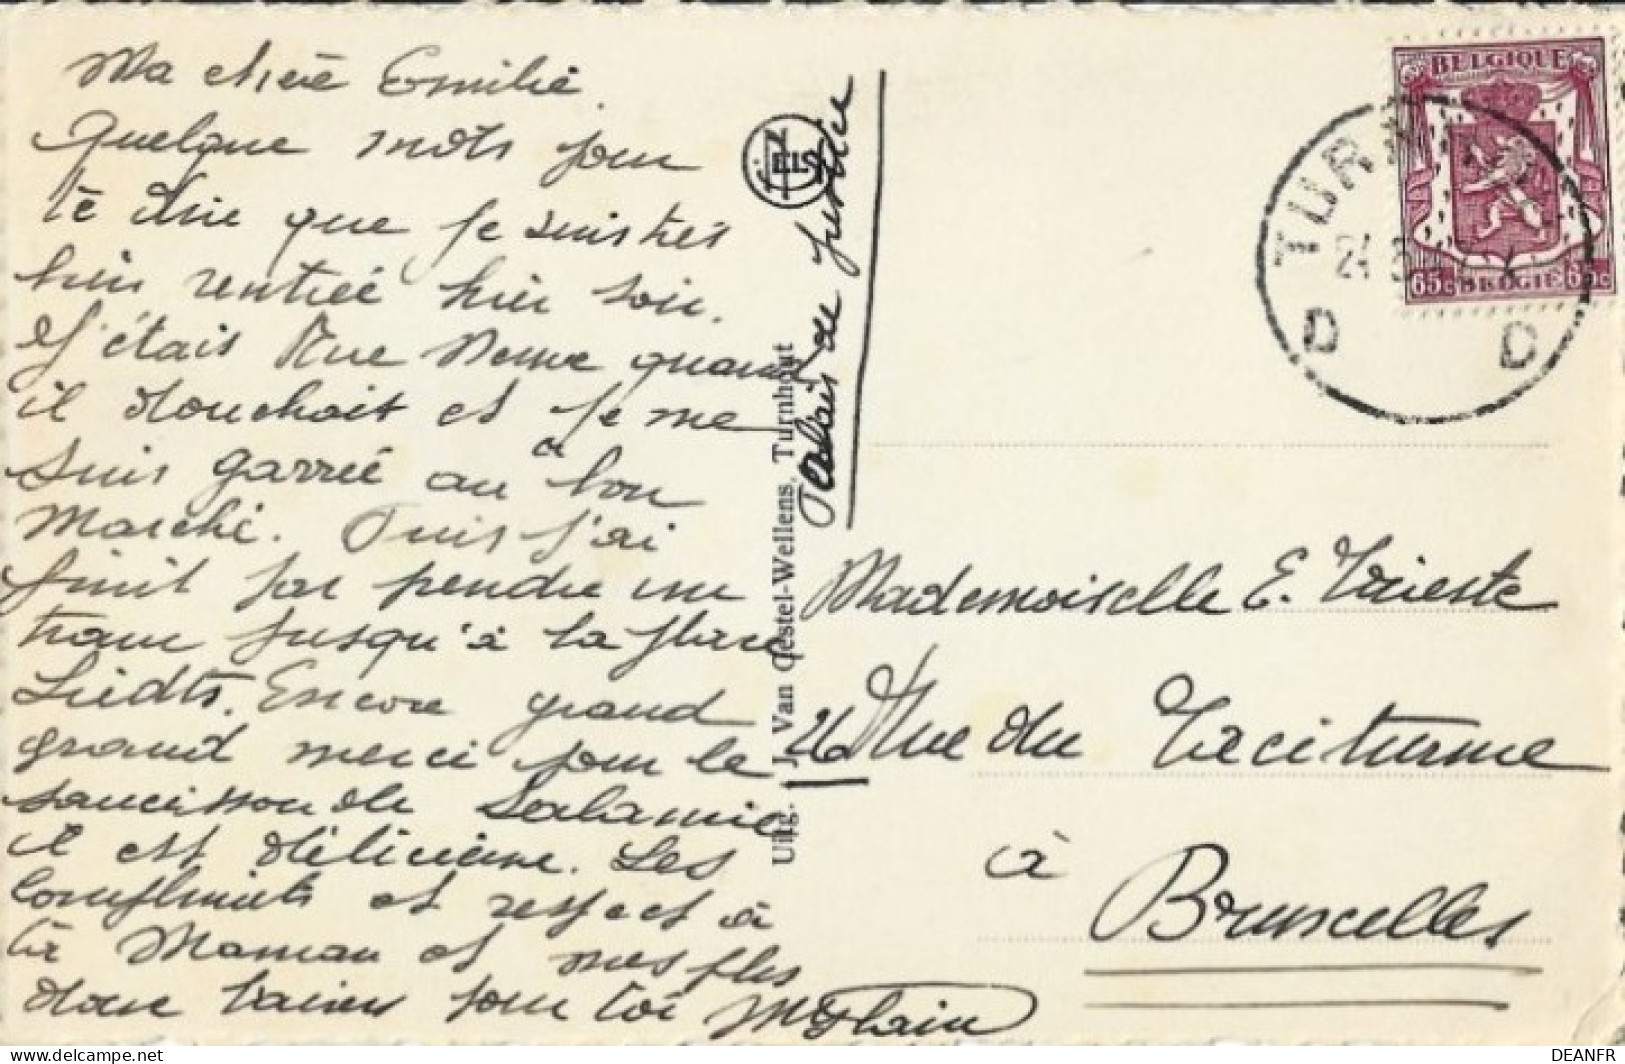 Ma chère Emilie.
Quelque mots pour
te dire que je suis très
bien rentrée hier soir.
J'étais Rue Neuve quand
il douchait et je me
suis garrée au bon
Marché. Puis j'ai
finit par prendre un
tram jusqu'à la place
Liedts. Encore grand
grand merci pour le
saucisson de Salamie
il est délicieux. Les
compliments et respect à
ta Maman et mes plus
doux baisers pour toi
Palais de Justice
Uitg. J. Van Gestel-Wellens, Turnhout
BELGIQUE
65c BELGIË 65c
TUR
D D
Mademoiselle E. Trieste
26 Rue du Taciturne
à
Bruxelles
DEANFR
delcampe.net